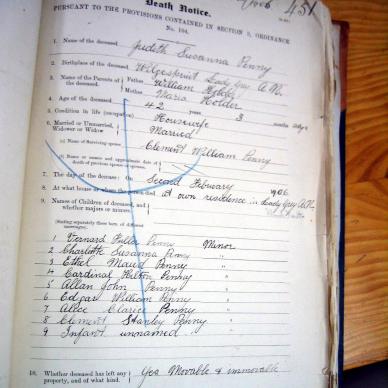 Death Notice.
451
PURSUANT TO THE PROVISIONS CONTAINED IN SECTION 9, ORDINANCE
No. 104.
1. Name of the deceased Judith Susanna Penny
2. Birthplace of the deceased Wilgespruit Lady Grey A.N.
3. Names of the Parents of the deceased. Father William Holder
Mother Maria Holder
4. Age of the deceased 42 years 3 months days
5. Condition in life (occupation) Housewife
6. Married or Unmarried, Widower or Widow Married
(a) Name of Surviving spouse Clement William Penny
(b) Name or names and approximate date of death of previous spouse or spouses
7. The day of the decease: On Second February 1906
8. At what house or where the person died at own residence in Lady Grey A.N.
9. Names of Children of deceased, and whether majors or minors.
(Stating separately those born of different marriages).
1 Vernard Fuller Penny Minor
2 Charlotte Susanna Penny "
3 Ethel Maud Penny "
4 Cardinal Hilton Penny "
5 Allan John Penny "
6 Edgar William Penny "
7 Alice Clarice Penny "
8 Clement Stanley Penny "
9 Infant unnamed "
10. Whether deceased has left any property, and of what kind. Yes Movable & immovable